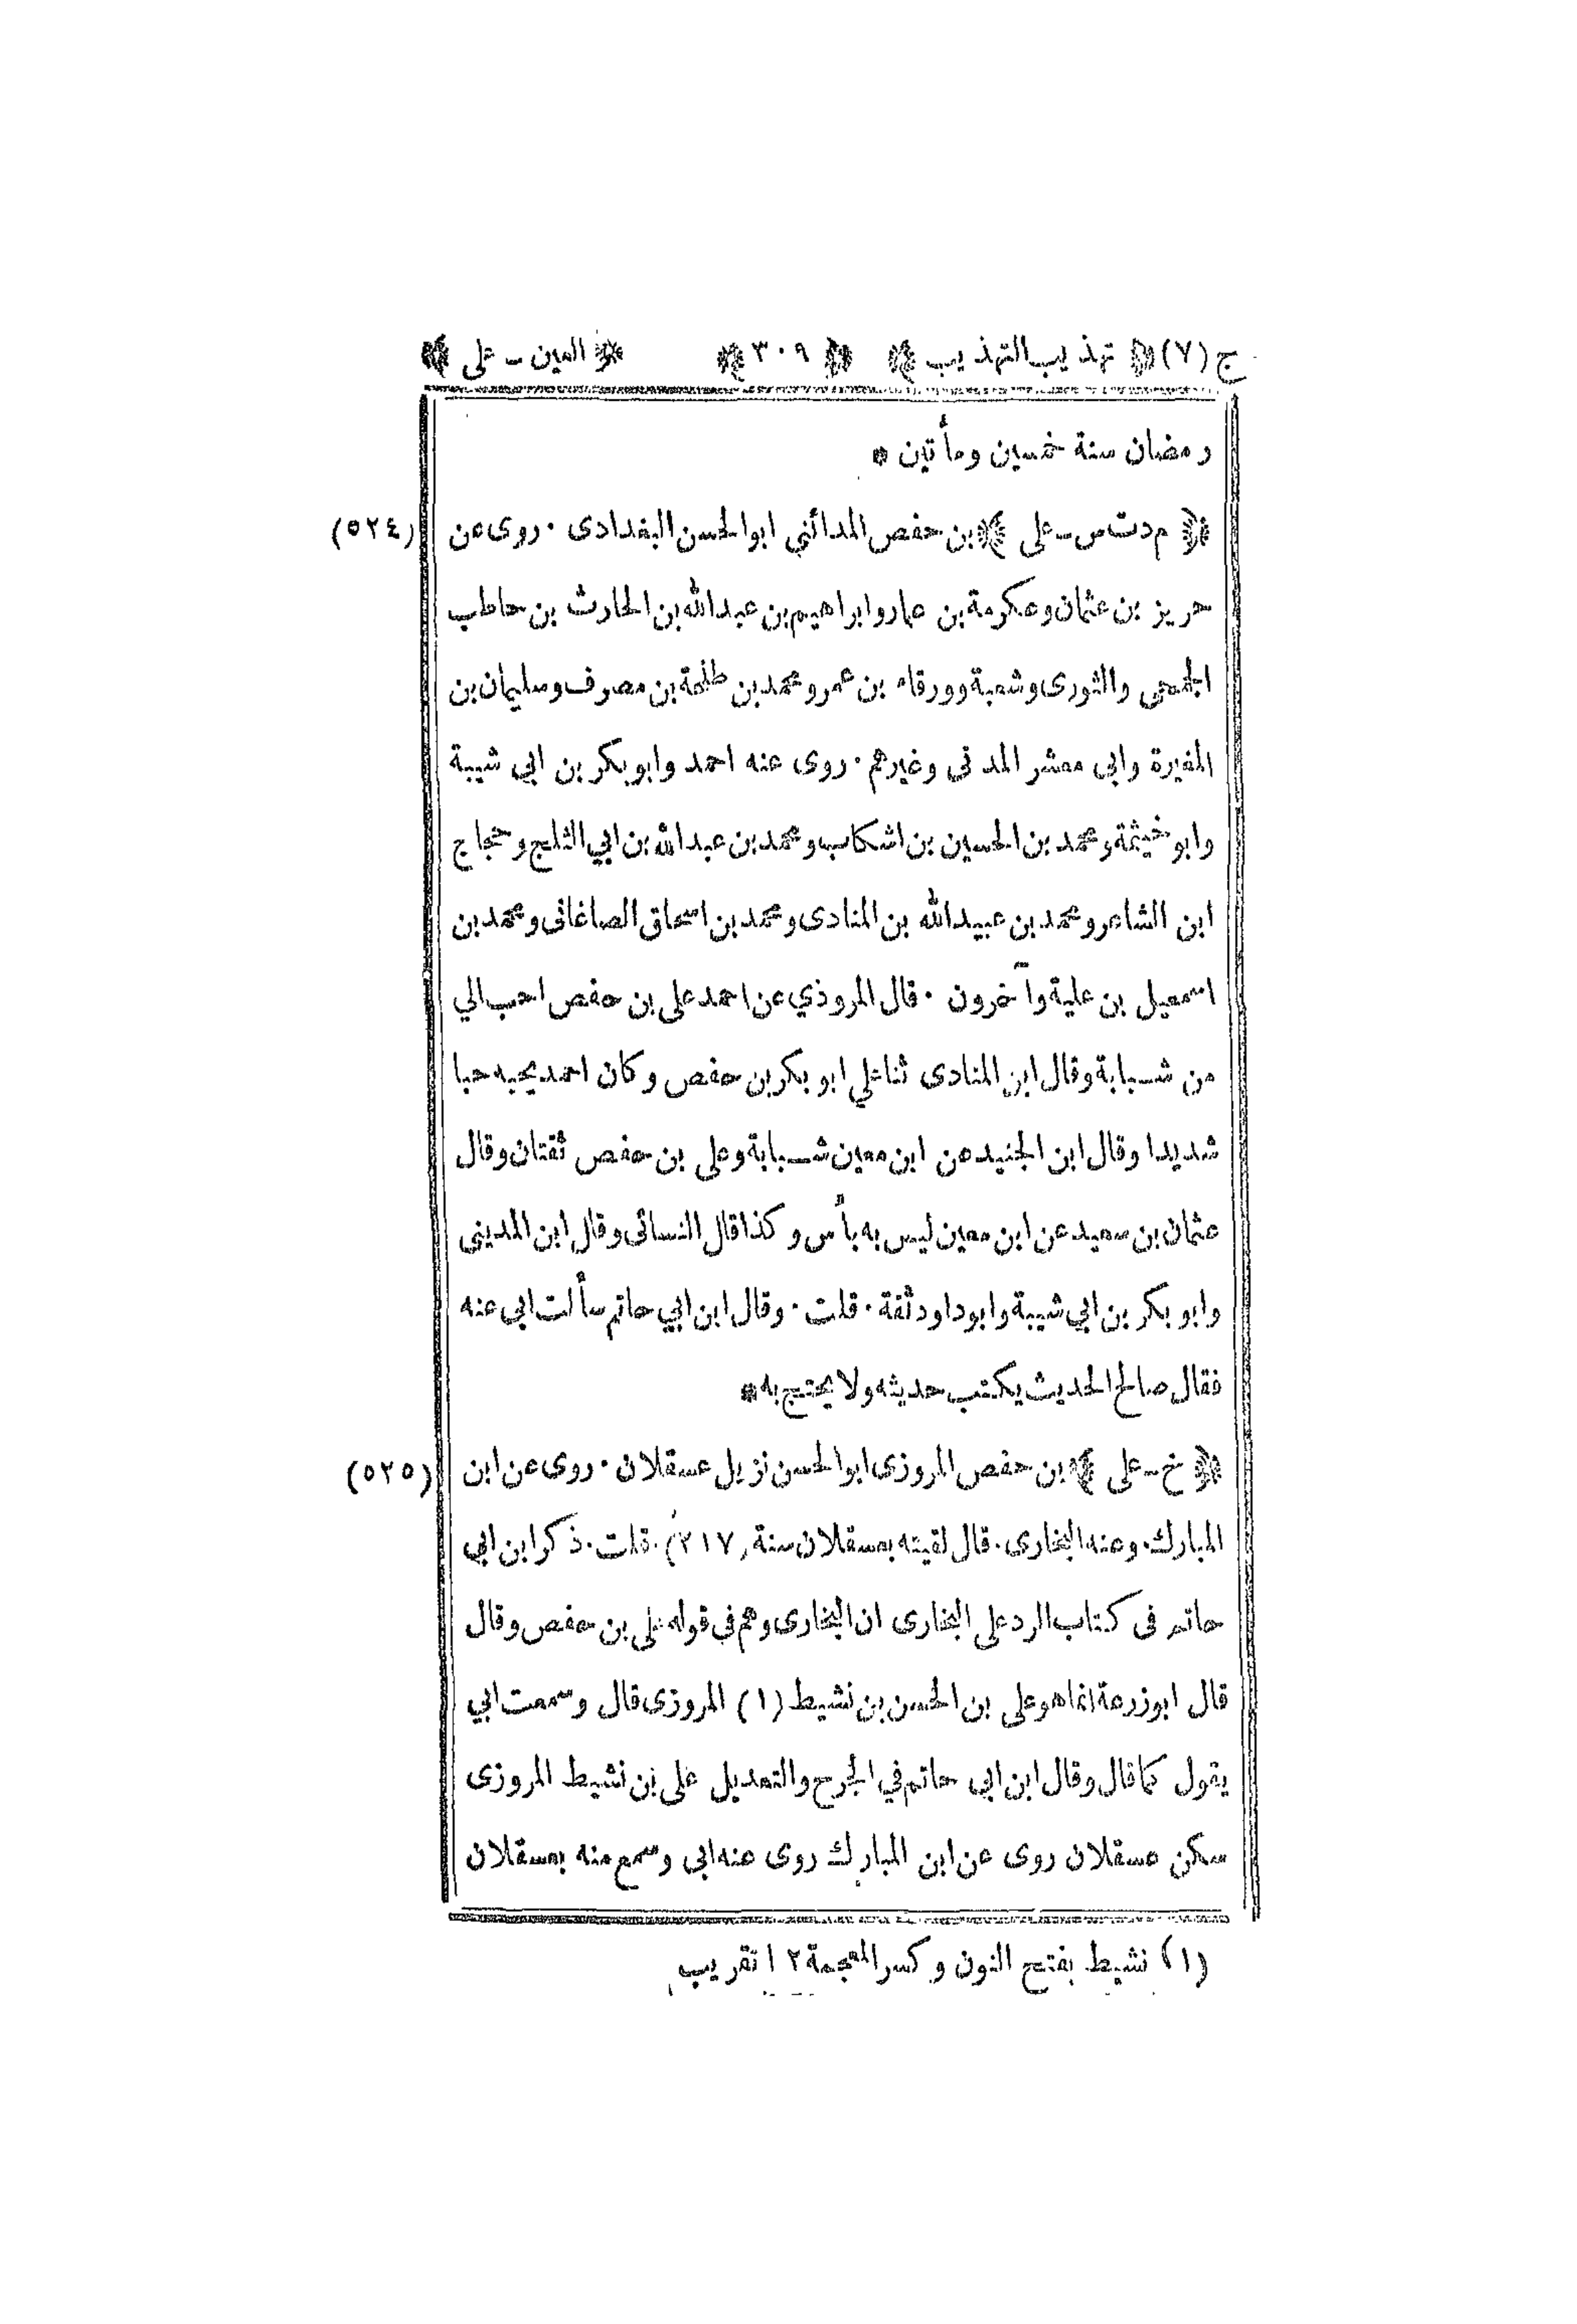 ج (٧) ﴿ تهذيب التهذيب ﴾ ﴿ ٣٠٩ ﴾ ﴿ العين ـ على ﴾
رمضان سنة خمسين ومأتين *
(٥٢٤) ﴿ م دت س ـ على ﴾ بن حفص المدائني ابوالحسن البغدادى ٠ روى عن
حريز بن عثمان وعكرمة بن عمار وابراهيم بن عبدالله بن الحارث بن حاطب
الجمحى والثورى وشعبة وورقاء بن عمر ومحمد بن طلحة بن مصرف وسليمان بن
المغيرة وابي معشر المدنى وغيرهم ٠ روى عنه احمد وابوبكر بن ابي شيبة
وابوخيثمة ومحمد بن الحسين بن اشكاب ومحمد بن عبدالله بن ابي الثلج وحجاج
ابن الشاعر ومحمد بن عبيدالله بن المنادى ومحمد بن اسحاق الصاغانى ومحمد بن
اسمعيل بن علية وآخرون ٠ قال المروذي عن احمد على بن حفص احب الي
من شبابة وقال ابن المنادى ثنا علي ابو بكر بن حفص وكان احمد يحبه حبا
شديدا وقال ابن الجنيد عن ابن معين شبابة وعلى بن حفص ثقتان وقال
عثمان بن سعيد عن ابن معين ليس به بأس وكذا قال النسائى وقال ابن المدينى
وابو بكر بن ابي شيبة وابوداود ثقة ٠ قلت ٠ وقال ابن ابي حاتم سألت ابى عنه
فقال صالح الحديث يكتب حديثه ولا يحتج به *
(٥٢٥) ﴿ خ ـ على ﴾ بن حفص المروزى ابوالحسن نزيل عسقلان ٠ روى عن ابن
المبارك ٠ وعنه البخارى ٠ قال لقيته بعسقلان سنة (٢١٧) ٠ قلت ٠ ذكر ابن ابي
حاتم فى كتاب الرد على البخارى ان البخارى وهم في قوله على بن حفص وقال
قال ابوزرعة انما هو على بن الحسن بن نشيط (١) المروزى قال وسمعت ابي
يقول كما قال وقال ابن ابى حاتم في الجرح والتعديل على بن نشيط المروزى
سكن عسقلان روى عن ابن المبارك روى عنه ابى وسمع منه بعسقلان
(١) نشيط بفتح النون وكسر المعجمة ١٢ تقريب